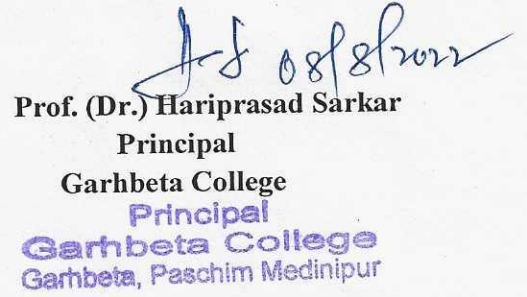 08/8/2022
Prof. (Dr.) Hariprasad Sarkar
Principal
Garhbeta College
Principal
Garhbeta College
Garhbeta, Paschim Medinipur